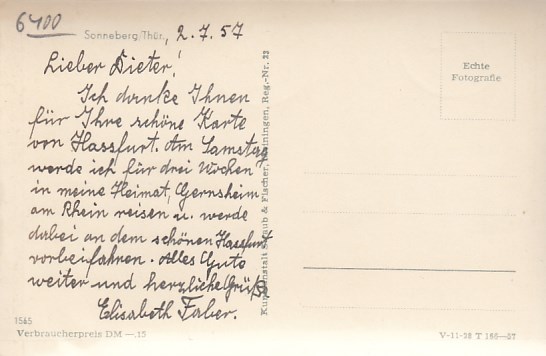 6400
Sonneberg/Thür., 2.7.57
Lieber Dieter!
Ich danke Ihnen
für Ihre schöne Karte
von Hassfurt. Am Samstag
werde ich für drei Wochen
in meine Heimat, Gernsheim
am Rhein reisen u. werde
dabei an dem schönen Hassfurt
vorbeifahren. Alles Gute
weiter und herzliche Grüße
Elisabeth Faber.
1565
Verbraucherpreis DM —.15
Kunstanstalt Straub & Fischer, Meiningen, Reg.-Nr. 22
Echte
Fotografie
V-11-28 T 186—57